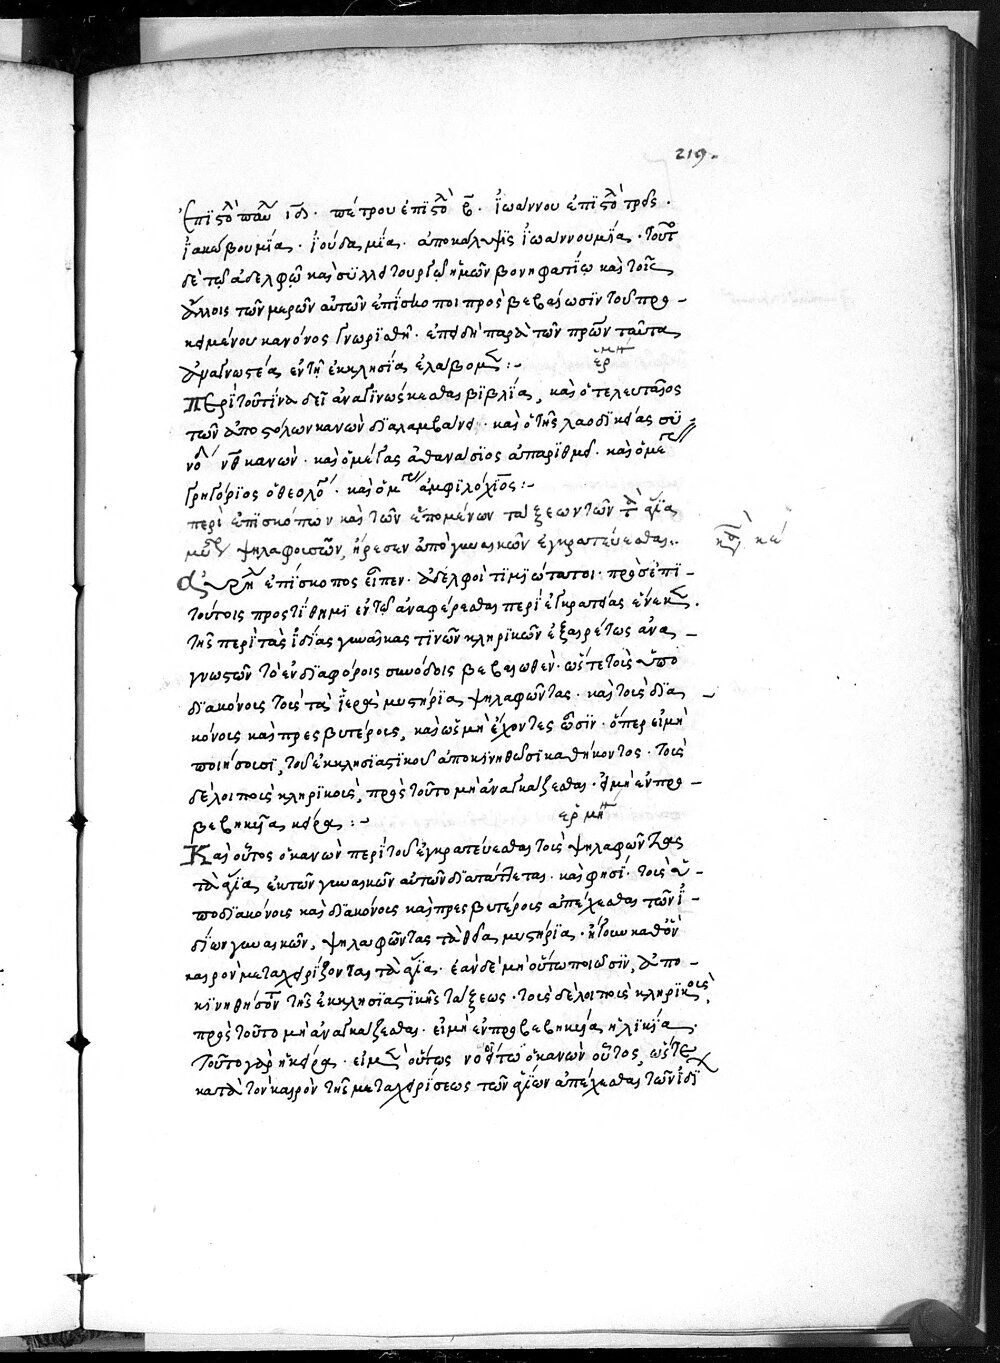 219.
ἐπιστολαὶ παύλου ιδ. πέτρου ἐπιστολαὶ β. ἰωάννου ἐπιστολαὶ τρεῖς.
ἰακώβου μία. ἰούδα μία. ἀποκάλυψις ἰωάννου μία. τοῦτο
δὲ τῷ ἀδελφῷ καὶ συλλειτουργῷ ἡμῶν βονηφατίῳ καὶ τοῖς
ἄλλοις τῶν μερῶν αὐτῶν ἐπισκόποι πρὸς βεβαίωσιν τοῦ προ-
κειμένου κανόνος γνωρισθῇ. ἐπειδὴ παρὰ τῶν πρων ταῦτα
ἀναγνωστέα ἐν τῇ ἐκκλησίᾳ ἐλάβομεν:-
ἑρμη
Περὶ τοῦ τίνα δεῖ ἀναγινώσκεσθαι βιβλία, καὶ ὁ τελευταῖος
τῶν ἀποστόλων κανὼν διαλαμβάνει. καὶ ὁ τῆς λαοδικείας συ-
νο νθ κανών. καὶ ὁ μέγας ἀθανάσιος ἀπαριθμεῖ. καὶ ὁ μέγας
γρηγόριος ὁ θεολό. καὶ ὁ μέγας ἀμφιλόχιος:-
περὶ ἐπισκόπων καὶ τῶν ἑπομένων τάξεων τῶν τὰ ἅγια
μυστήρια ψηλαφούντων, ἤρεσεν ἀπὸ γυναικῶν ἐγκρατεύεσθαι..
κεφ κε
Αὐρή ἐπίσκοπος εἶπεν. ἀδελφοὶ τιμιώτατοι. πρὸς ἐπὶ
τούτοις προστίθημι ἐν τῷ ἀναφέρεσθαι περὶ ἐγκρατείας ἕνεκεν.
τῆς περὶ τὰς ἰδίας γυναῖκας τινῶν κληρικῶν ἐξαιρέτως ἀνα-
γνωστῶν τὸ ἐν διαφόροις συνόδοις βεβαιωθέν. ὥστε τοῖς ὑπο
διακόνοις τοῖς τὰ ἱερὰ μυστήρια ψηλαφῶντας. καὶ τοῖς δια-
κόνοις καὶ πρεσβυτέροις, καὶ ὡς μὴ ἔχοντες ὦσιν. ὅπερ εἰ μὴ
ποιήσοισι, τοῦ ἐκκλησιαστικοῦ ἀποκινηθῶσι καθήκοντος. τοῖς
δὲ λοιποῖς κληρικοῖς, πρὸς τοῦτο μὴ ἀναγκάζεσθαι. εἰ μὴ ἐν προ-
βεβηκυῖα κείρα:-
ἑρμη
Καὶ οὗτος ὁ κανὼν περὶ τοῦ ἐγκρατεύεσθαι τοὺς ψηλαφῶντας
τὰ ἅγια ἐκ τῶν γυναικῶν αὐτῶν διατάττεται. καὶ φησί. τοὺς ὑ-
ποδιακόνοις καὶ διακόνοις καὶ πρεσβυτέροις ἀπέχεσθαι τῶν ἰ-
δίων γυναικῶν, ψηλαφῶντας τὰ θεῖα μυστήρια. ἤγουν καθ' ὃν
καιρὸν μεταχειρίζονται τὰ ἅγια. ἐὰν δὲ μὴ οὕτω ποιῶσιν, ἀπο-
κινηθήσονται τῆς ἐκκλησιαστικῆς τάξεως. τοὺς δὲ λοιποὺς κληρικοὺς,
πρὸς τοῦτο μὴ ἀναγκάζεσθαι. εἰ μὴ ἐν προβεβηκυίᾳ ἡλικίᾳ.
τοῦτο γὰρ ἡ κείρα. εἰ μὲν οὕτως νοοῖτο ὁ κανὼν οὗτος, ὥστε
κατὰ τὸν καιρὸν τῆς μεταχειρίσεως τῶν ἁγίων ἀπέχεσθαι τῶν ἰδί